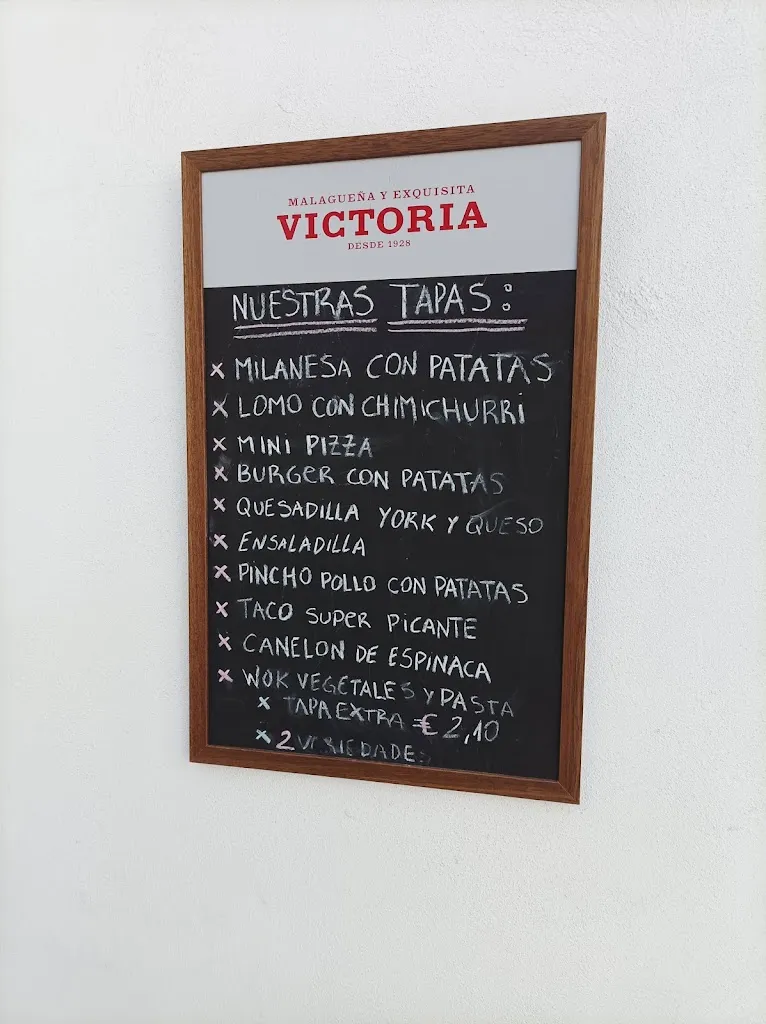 MALAGUEÑA Y EXQUISITA
VICTORIA
DESDE 1928
NUESTRAS TAPAS:
x MILANESA CON PATATAS
x LOMO CON CHIMICHURRI
x MINI PIZZA
x BURGER CON PATATAS
x QUESADILLA YORK Y QUESO
x ENSALADILLA
x PINCHO POLLO CON PATATAS
x TACO SUPER PICANTE
x CANELON DE ESPINACA
x WOK VEGETALES Y PASTA
x TAPA EXTRA € 2,10
x 2 VARIEDADES